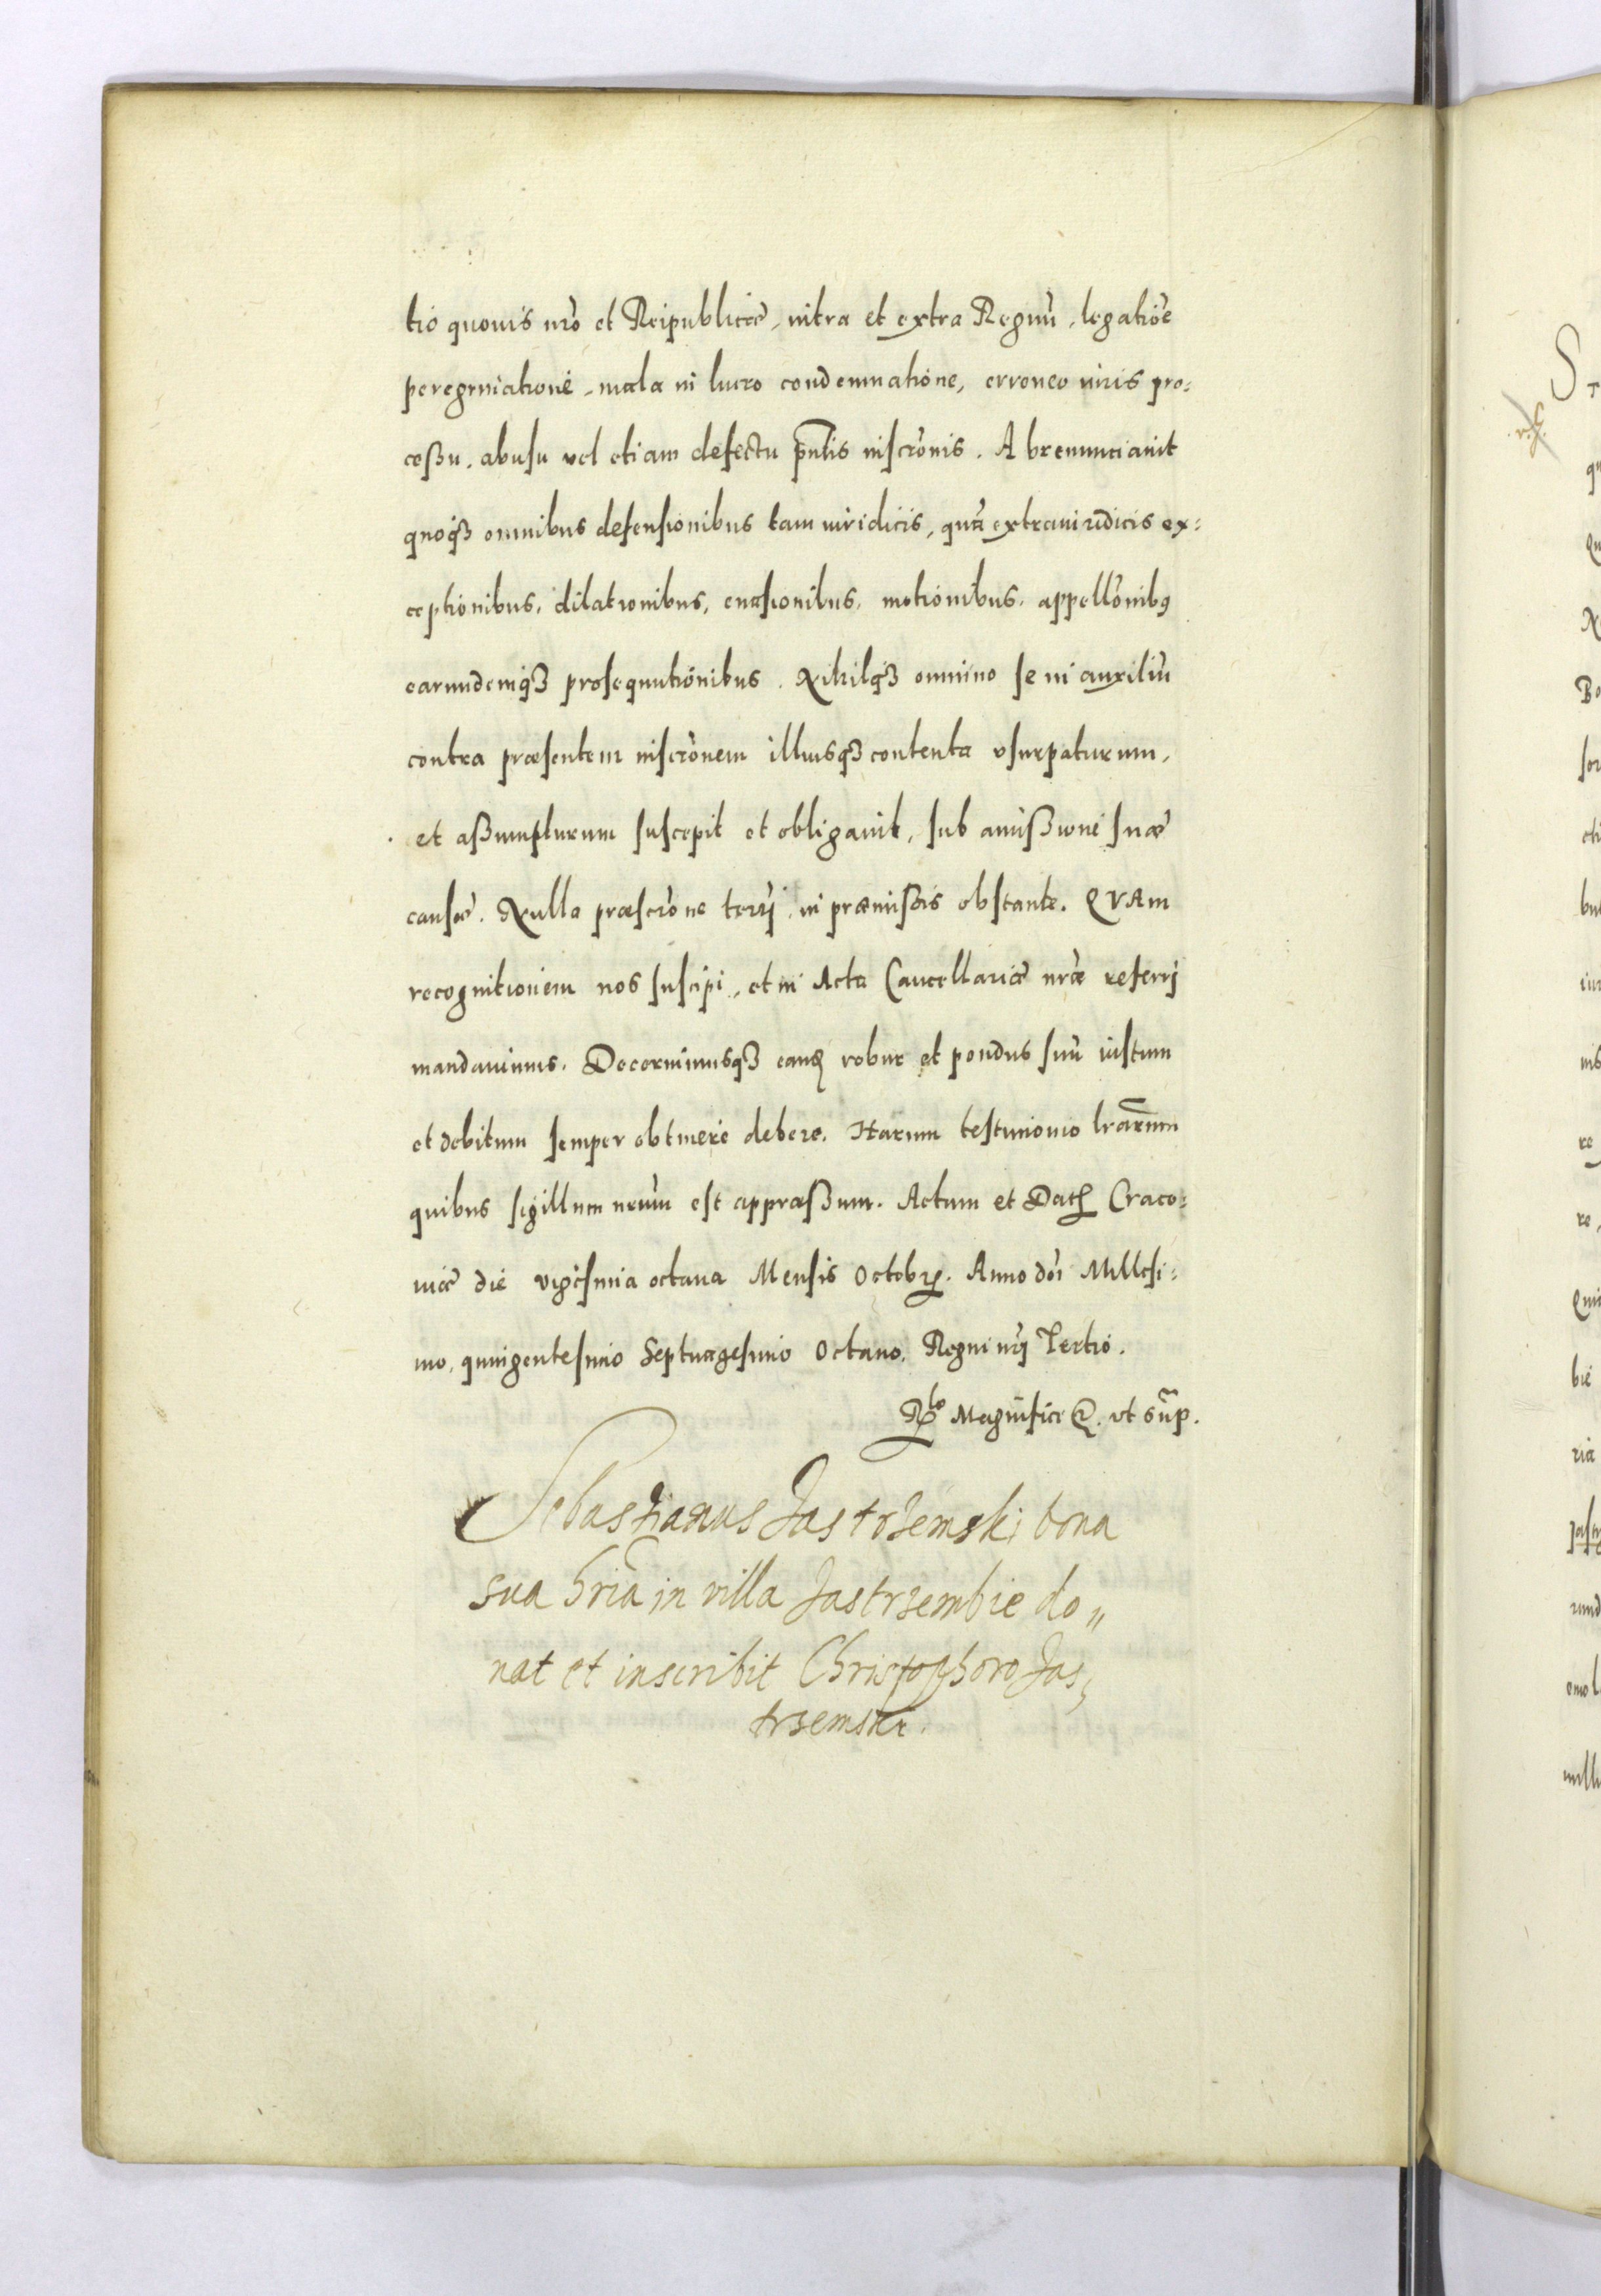 tio quouis nr̃o et Reipublicæ, intra et extra Regnũ, legatiõe
peregrinatione, mala in lucro condemnatione, erroneo iuris pro=
cessu, abusu vel etiam defectu pñtis inscr̃onis. Abrenunciauit
quoq3 omnibus defensionibus tam iuridicis, quã extraiuridicis ex=
ceptionibus, dilationibus, euasionibus, motionibus, appell̃onibus
earundemq3 prosequutionibus. Nihilq3 omnino se in auxiliũ
contra præsentem inscr̃onem illiusq3 contenta vsurpaturum,
et assumpturum suscepit et obligauit, sub amissione suæ
causæ. Nulla præscr̃one terrj, in præmissis obstante. QVAm
recognitionem nos suscipi, et in Acta Cancellariæ nr̃æ referrj
mandauimus. Decernimusq3 eand robur et pondus suũ iustum
et debitum semper obtinere debere. Harum testimonio lr̃arum
quibus sigillum nr̃um est appræssum. Actum et Dat Craco=
uiæ die vigesima octaua Mensis Octobr. Anno dñi Millesi=
mo, quingentesimo Septuagesimo Octauo. Regni nr̃j Tertio.
Rlo Magnifici &. vt sup̃.
Sebastianus Jastrzemski bona
sua hr̃ia in villa Jastrzembie do"
nat et inscribit Christophoro Jas,
trzemski.